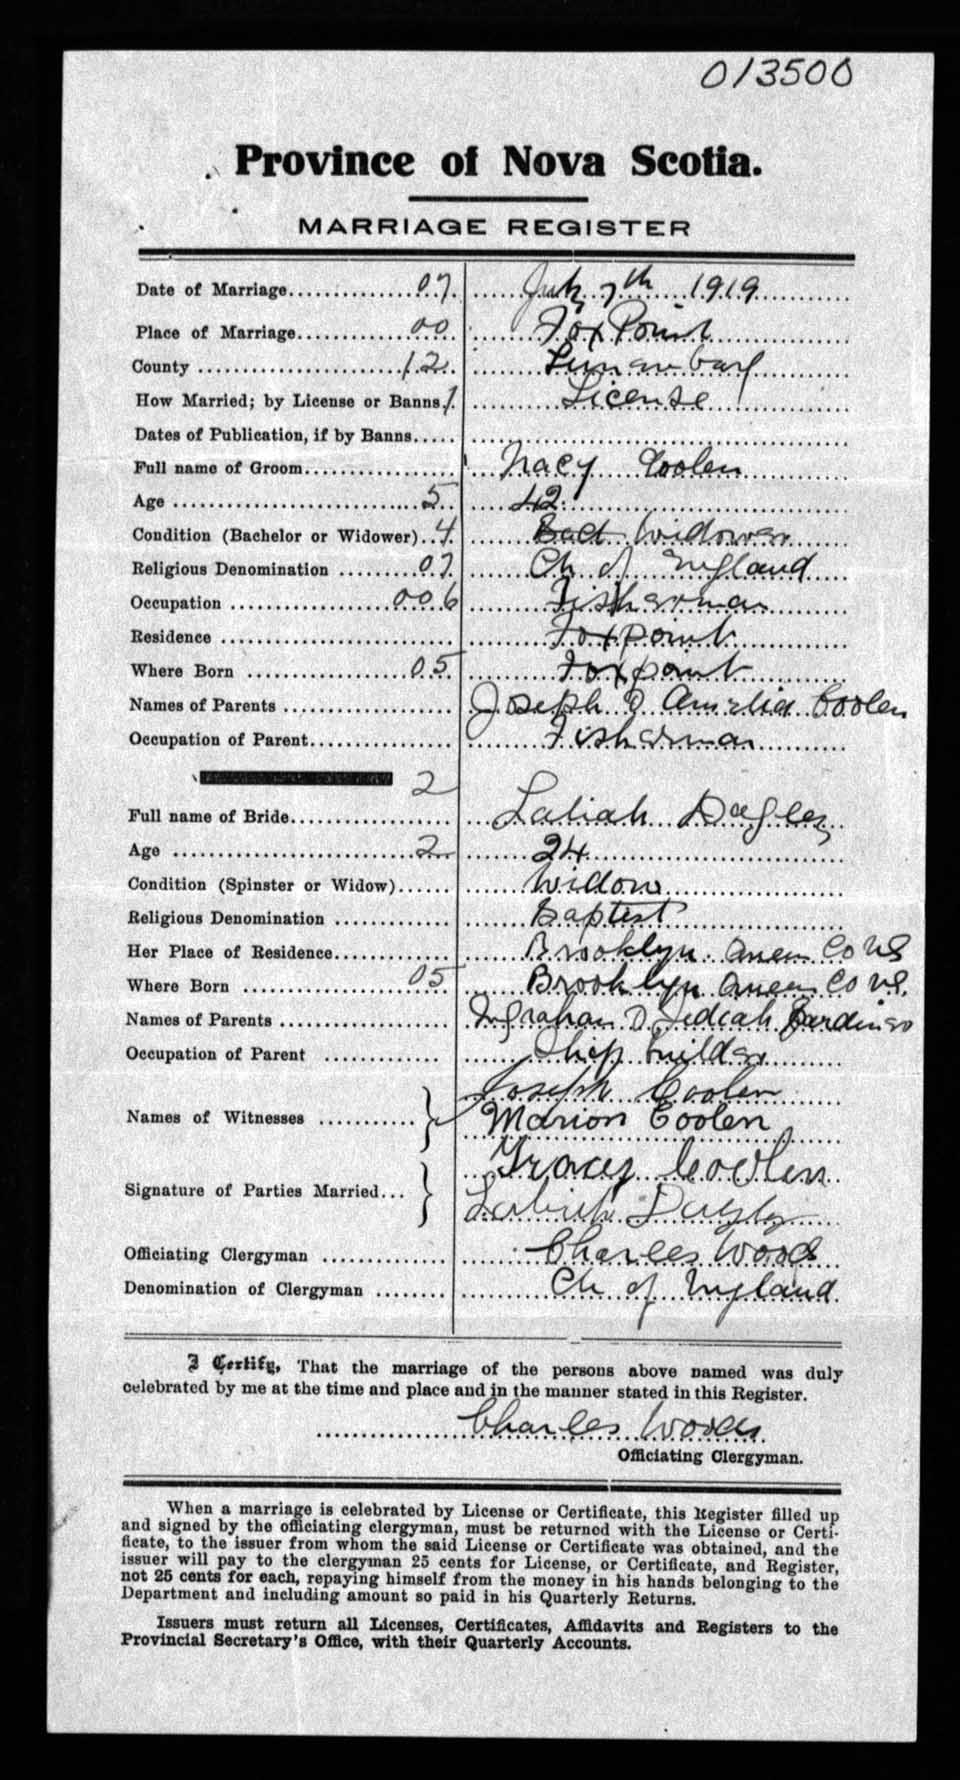 013500
Province of Nova Scotia.
MARRIAGE REGISTER
Date of Marriage 07 July 7th 1919
Place of Marriage 00 Fox Point
County 12 Lunenburg
How Married; by License or Banns. 1 License
Dates of Publication, if by Banns
Full name of Groom Nacy Coolen
Age 5 42
Condition (Bachelor or Widower) 4 Bach Widower
Religious Denomination 07 Ch of England
Occupation 006 Fisherman
Residence Foxpoint
Where Born 05 Foxpoint
Names of Parents Joseph & Amelia Coolen
Occupation of Parent Fisherman
2
Full name of Bride Laliah Dagley
Age 2 24
Condition (Spinster or Widow) Widow
Religious Denomination Baptist
Her Place of Residence Brooklyn Queen Co NS
Where Born 05 Brooklyn Queen Co NS.
Names of Parents Ingraham & Jediah
Occupation of Parent Ship builder
Joseph Coolen
Names of Witnesses Marion Coolen
Tracey Coolen
Signature of Parties Married
Officiating Clergyman Charles Wood
Denomination of Clergyman Ch of England
I Certify, That the marriage of the persons above named was duly
celebrated by me at the time and place and in the manner stated in this Register.
Charles Woods
Officiating Clergyman.
When a marriage is celebrated by License or Certificate, this Register filled up
and signed by the officiating clergyman, must be returned with the License or Certi-
ficate, to the issuer from whom the said License or Certificate was obtained, and the
issuer will pay to the clergyman 25 cents for License, or Certificate, and Register,
not 25 cents for each, repaying himself from the money in his hands belonging to the
Department and including amount so paid in his Quarterly Returns.
Issuers must return all Licenses, Certificates, Affidavits and Registers to the
Provincial Secretary's Office, with their Quarterly Accounts.